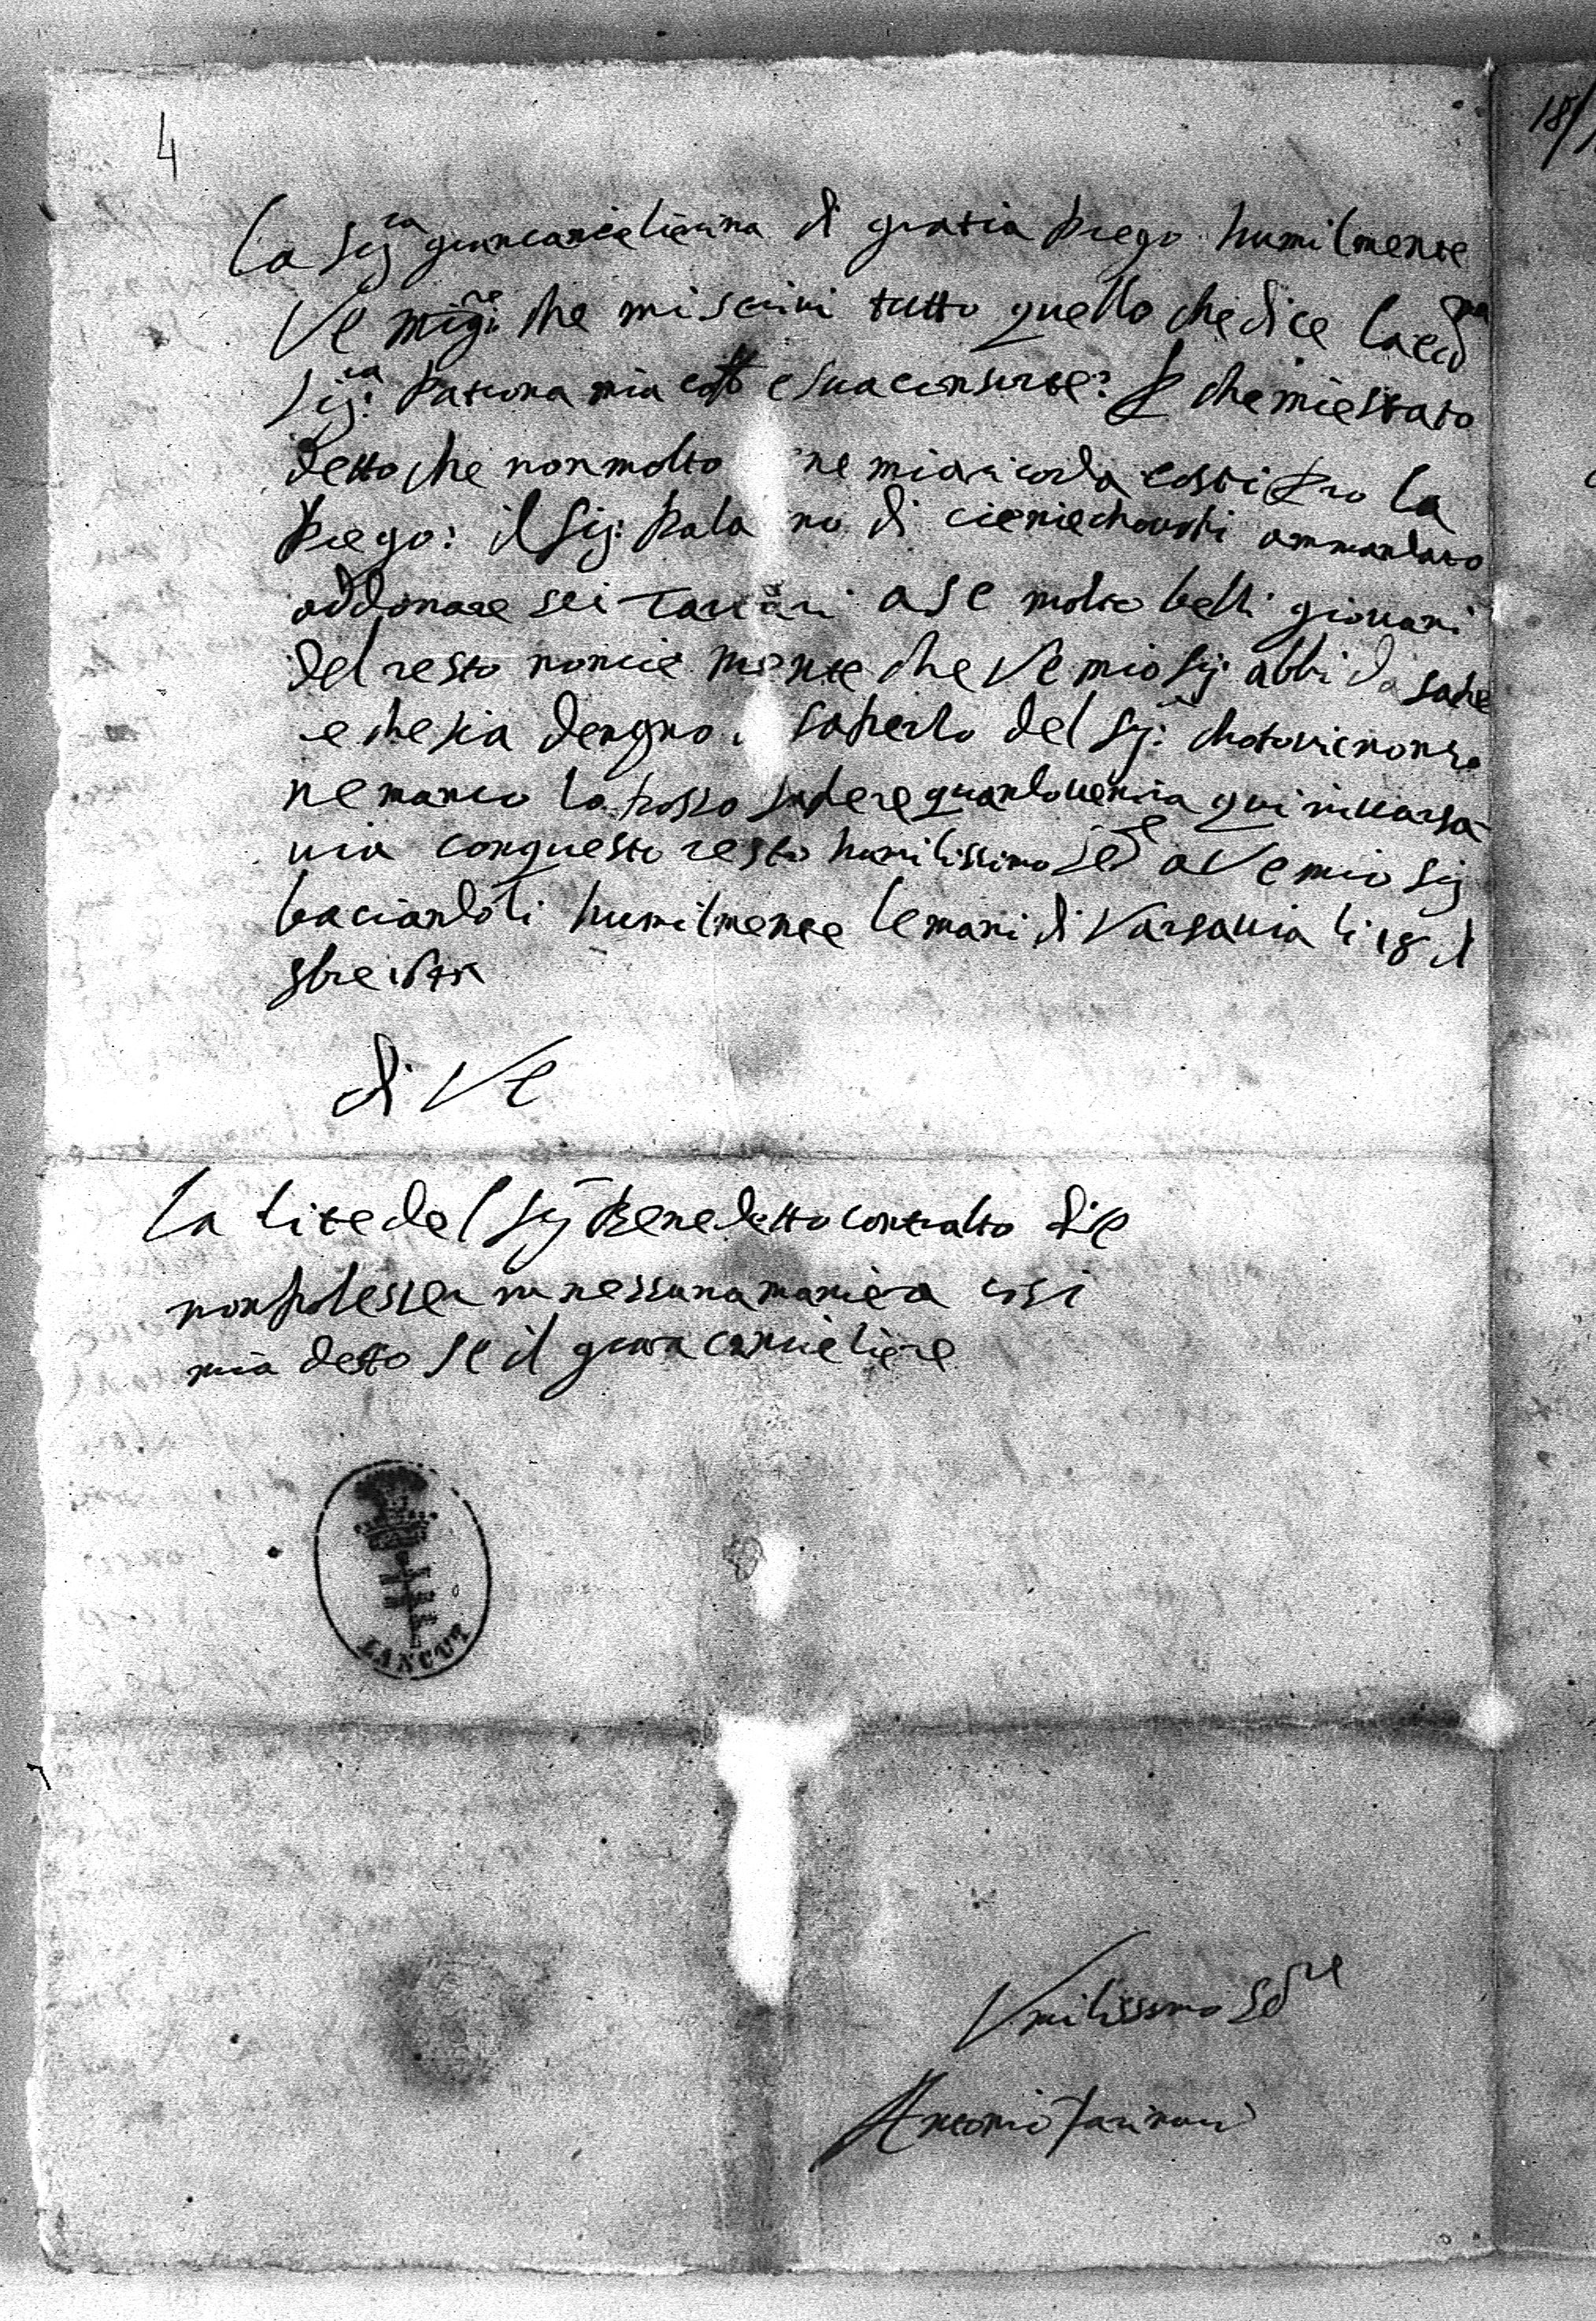 4
18/
La Sig.ra grancancielierina di gratia prego humilmente
VE mio sig.re che mi scrivi tutto quello che dice la
Sig:ra patrona mia e sua consorte: p che mie stato
detto che non molto ne mi aricorda costi pro la
prego: il Sig: Pala no di ammandato
addonare sei Tartari a SE molto belli giovani
del resto noncie niente che VE mio Sig abbi da sape
e che sia dengno saperlo del Sig:
ne manco la posso sapere quando venira qui invarsa
via con questo resto humilissimo se.re a VE mio Sig
baciandoli humilmente le mani di Varsavia li 18 d
9bre
di VE
La lite del Sig Benedetto contralto dice
non pol esser in nessuna maniera cosi
mia detto SE il grancancieliere
LANCUT
Vmilissimo Se.re
Antonio